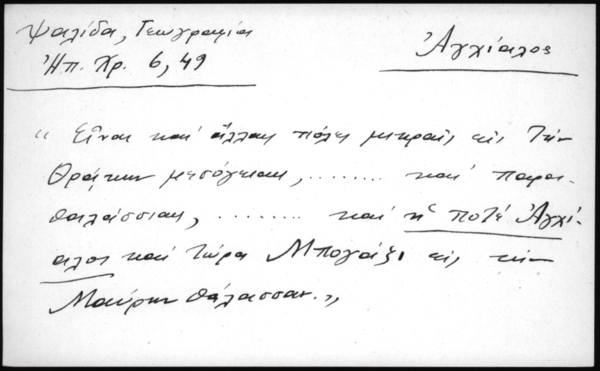 Ψαλίδα, Γεωγραφία
Ἠπ. Χρ. 6, 49
Ἀγχίαλος
“ Εἶναι καὶ ἄλλαι πόλεις μικραὶ, εἰς τὴν
Θρᾴκην μεσόγειαι, ........ καὶ παρα-
θαλάσσιαι, ........ καὶ ἡ ποτὲ Ἀγχί-
αλος καὶ τώρα Μπογάζι εἰς τὴν
Μαύρην θάλασσαν.„